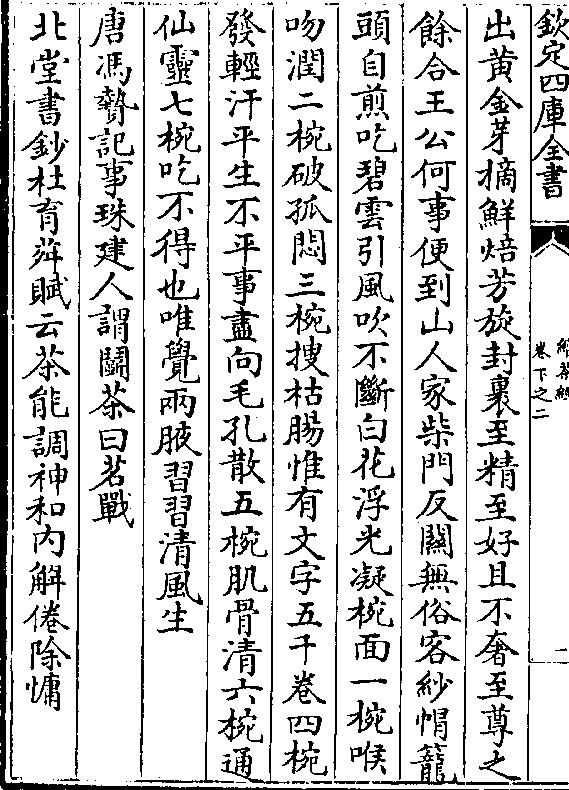 欽定四庫全書
續茶經
卷下之二
一
出黃金芽摘鮮焙芳旋封裹至精至好且不奢至尊之
餘合王公何事便到山人家柴門反關無俗客紗帽籠
頭自煎吃碧雲引風吹不斷白花浮光凝椀面一椀喉
吻潤二椀破孤悶三椀搜枯腸惟有文字五千卷四椀
發輕汗平生不平事盡向毛孔散五椀肌骨清六椀通
仙靈七椀吃不得也唯覺兩腋習習清風生
唐馮贄記事珠建人謂鬬茶曰茗戰
北堂書鈔杜育荈賦云茶能調神和內解倦除慵